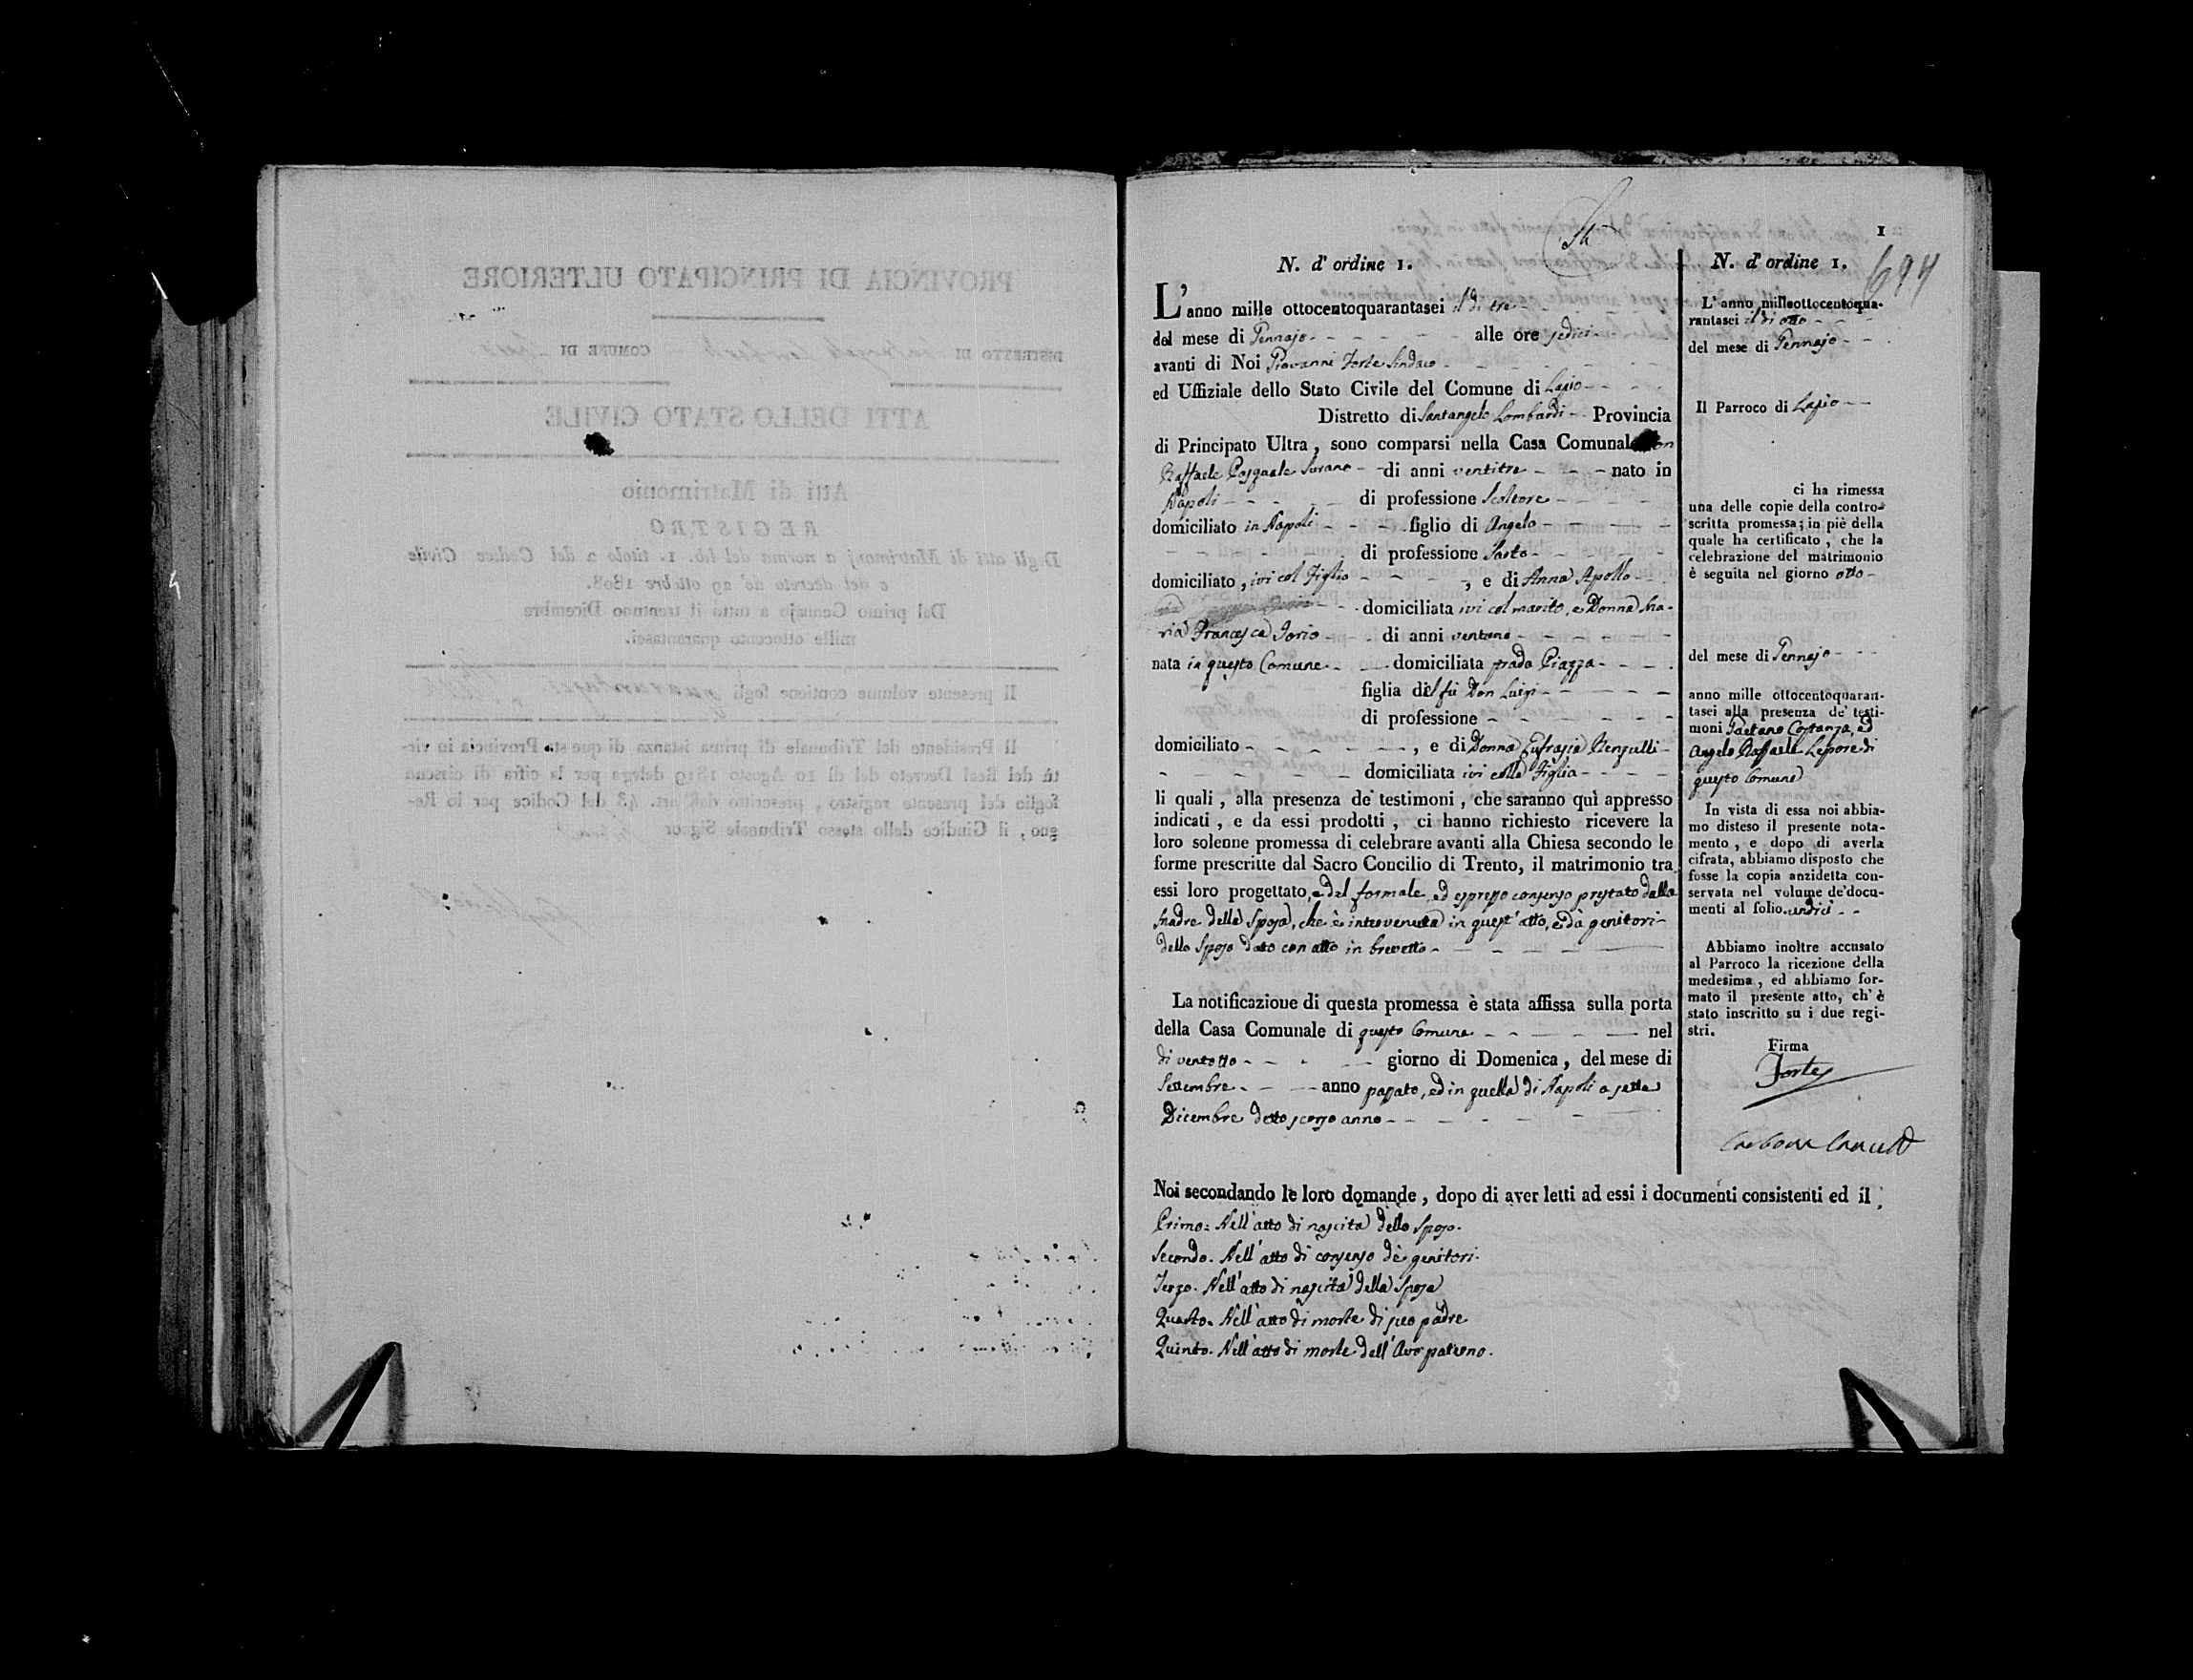 1
694
N. d' ordine 1.
L'anno mille ottocentoquarantasei il dì tre
del mese di Gennajo alle ore sedici
avanti di Noi Giovanni Forte Sindaco
ed Uffiziale dello Stato Civile del Comune di Lapio
Distretto di Santangelo Lombardi Provincia
di Principato Ultra, sono comparsi nella Casa Comunale Don
Raffaele Pasquale Surano di anni ventitre nato in
Napoli di professione Scoltore
domiciliato in Napoli figlio di Angelo
di professione Sarto
domiciliato, ivi col Figlio, e di Anna Apollo
domiciliata ivi col marito, e Donna Ma-
ria Francesca Iorio di anni ventuno
nata in questo Comune domiciliata strada Piazza
figlia del fù Don Luigi
di professione
domiciliato, e di Donna Eufrasia Renzulli
domiciliata ivi colla Figlia
li quali, alla presenza de' testimoni, che saranno quì appresso
indicati, e da essi prodotti, ci hanno richiesto ricevere la
loro solenne promessa di celebrare avanti alla Chiesa secondo le
forme prescritte dal Sacro Concilio di Trento, il matrimonio tra
essi loro progettato, e del formale, ed espresso consenso prestato dalla
Madre della Sposa, che è intervenuta in quest'atto, e da genitori
dello Sposo dato con atto in brevetto
La notificazione di questa promessa è stata affissa sulla porta
della Casa Comunale di questo Comune nel
dì ventotto giorno di Domenica, del mese di
Settembre anno passato, ed in quella di Napoli a sette
Dicembre detto scorso anno
Noi secondando le loro domande, dopo di aver letti ad essi i documenti consistenti ed il
Primo: Nell'atto di nascita dello Sposo.
Secondo. Nell'atto di consenso de' genitori.
Terzo. Nell'atto di nascita della Sposa
Quarto. Nell'atto di morte di suo padre
Quinto. Nell'atto di morte dell'Avo paterno.
N. d' ordine 1.
L' anno milleottocentoqua-
rantasei il dì otto
del mese di Gennajo
Il Parroco di Lapio
ci ha rimessa
una delle copie della contro-
scritta promessa; in piè della
quale ha certificato, che la
celebrazione del matrimonio
è seguita nel giorno otto
del mese di Gennajo
anno mille ottocentoquaran-
tasei alla presenza de' testi-
moni Gaetano Costanza, ed
Angelo Raffaele Lepore di
questo Comune
In vista di essa noi abbia-
mo disteso il presente nota-
mento, e dopo di averla
cifrata, abbiamo disposto che
fosse la copia anzidetta con-
servata nel volume de' docu-
menti al folio undici
Abbiamo inoltre accusato
al Parroco la ricezione della
medesima, ed abbiamo for-
mato il presente atto, ch' è
stato inscritto su i due regi-
stri.
Firma
Forte